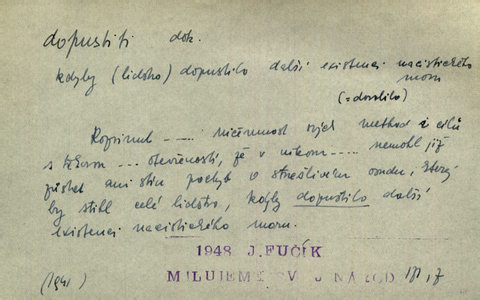 dopustiti dok.
kdyby (lidstvo) dopustilo další existenci nacistického
moru
(= dovolilo)
Rozvinul ..... ničemnost svých method i cílů
s takovou ... otevřeností, že v nikom ..... nemohl již
zůstat ani stín pochyb o strašlivém osudu, který
by stihl celé lidstvo, kdyby dopustilo další
existenci nacistického moru.
1948 J. FUČÍK
(1941) MILUJEME SVŮJ NÁROD